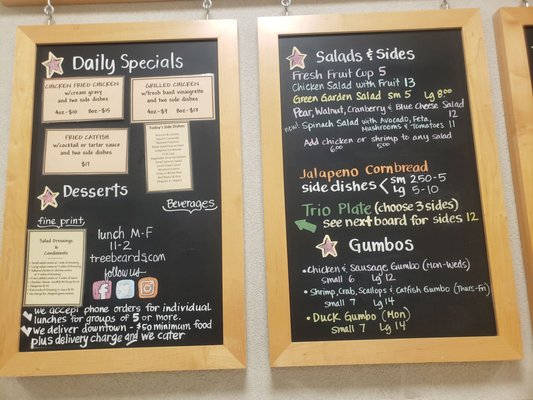 Daily Specials
CHICKEN FRIED CHICKEN
w/cream gravy
and two side dishes
4oz-$10 8oz-$15
GRILLED CHICKEN
w/fresh basil vinaigrette
and two side dishes
4oz $9 8oz $13
FRIED CATFISH
w/cocktail or tartar sauce
and two side dishes
$17
Today's Side Dishes
Desserts
Beverages
fine print,
Salad Dressings &
Condiments
lunch M-F
11-2
treebeards.com
follow us
we accept phone orders for individual
lunches for groups of 5 or more.
we deliver downtown - $50 minimum food
plus delivery charge and we cater
Salads & Sides
Fresh Fruit Cup 5
Chicken Salad with Fruit 13
Green Garden Salad sm 5 Lg 8.00
Pear, Walnut, Cranberry & Blue Cheese Salad
12
new! Spinach Salad with Avocado, Feta,
Mushrooms & Tomatoes 11
Add chicken or shrimp to any salad
6.00 5.00
Jalapeno Cornbread
side dishes < sm 2.50-5
Lg 5-10
Trio Plate (choose 3 sides)
see next board for sides 12
Gumbos
• Chicken & Sausage Gumbo (Mon-Weds)
small 6 Lg 12
• Shrimp, Crab, Scallops & Catfish Gumbo (Thurs-Fri)
Small 7 Lg 14
• Duck Gumbo (Mon)
Small 7 Lg 14